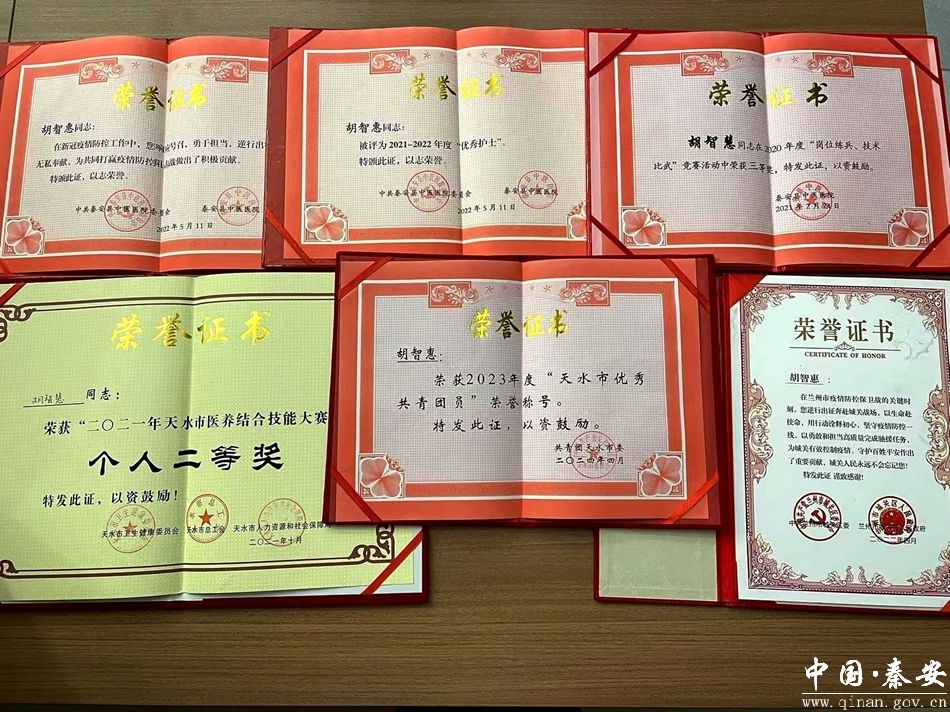 荣誉证书
胡智惠同志：
在新冠疫情防控工作中，您响应号召，勇于担当，逆行出征
无私奉献，为共同打赢疫情防控阻击战做出了积极贡献。
特颁此证，以志荣誉。
中共秦安县中医医院委员会 秦安县中医医院
2022年5月11日
荣誉证书
胡智惠同志：
被评为2021-2022年度“优秀护士”。
特颁此证，以志荣誉。
中共秦安县中医医院委员会
2022年5月11日
荣誉证书
胡智慧同志在2020年度“岗位练兵、技术
比武”竞赛活动中荣获三等奖，特发此证，以资鼓励。
秦安县中医医院
2021年2月24日
荣誉证书
胡智慧同志：
荣获“二〇二一年天水市医养结合技能大赛
个人二等奖
特发此证，以资鼓励！
天水市卫生健康委员会 天水市总工会 天水市人力资源和社会保障局
二〇二一年十月
荣誉证书
胡智惠：
荣获2023年度“天水市优秀
共青团员”荣誉称号。
特发此证，以资鼓励。
共青团天水市委
二〇二四年四月
荣誉证书
CERTIFICATE OF HONOR
胡智惠：
在兰州市疫情防控保卫战的关键时
刻，您逆行出征奔赴城关战场，以生命赴
使命，用行动诠释初心，坚守疫情防控一
线，以勇敢和担当高质量完成驰援任务，
为城关有效控制疫情、守护百姓平安作出
了重要贡献，城关人民永远不会忘记您！
特发此证 谨致感谢！
中国·秦安
www.qinan.gov.cn